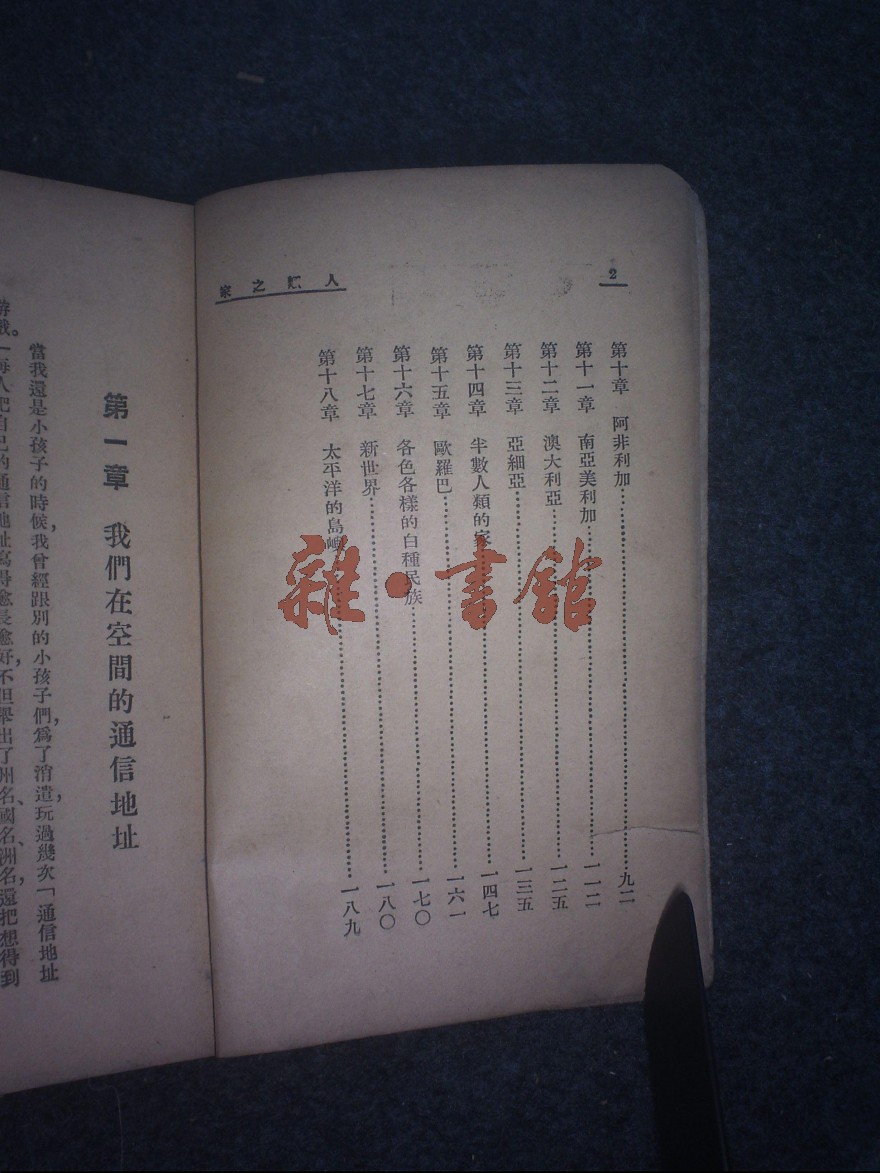 2
人類之家
第十章 阿非利加……九二
第十一章 南亞美利加……一一二
第十二章 澳大利亞……一二五
第十三章 亞細亞……一三五
第十四章 半數人類的家……一四七
第十五章 歐羅巴……一六一
第十六章 各色各樣的白種民族……一七〇
第十七章 新世界……一八〇
第十八章 太平洋的島嶼……一八九
雜·書館
第一章 我們在空間的通信地址
當我還是小孩子的時候,我曾經跟別的小孩子們,爲了消遣玩過幾次「通信地址
游戲。」每人把自己的通信地址寫得愈長愈好,不但舉出了州名、國名、洲名,還把想得到